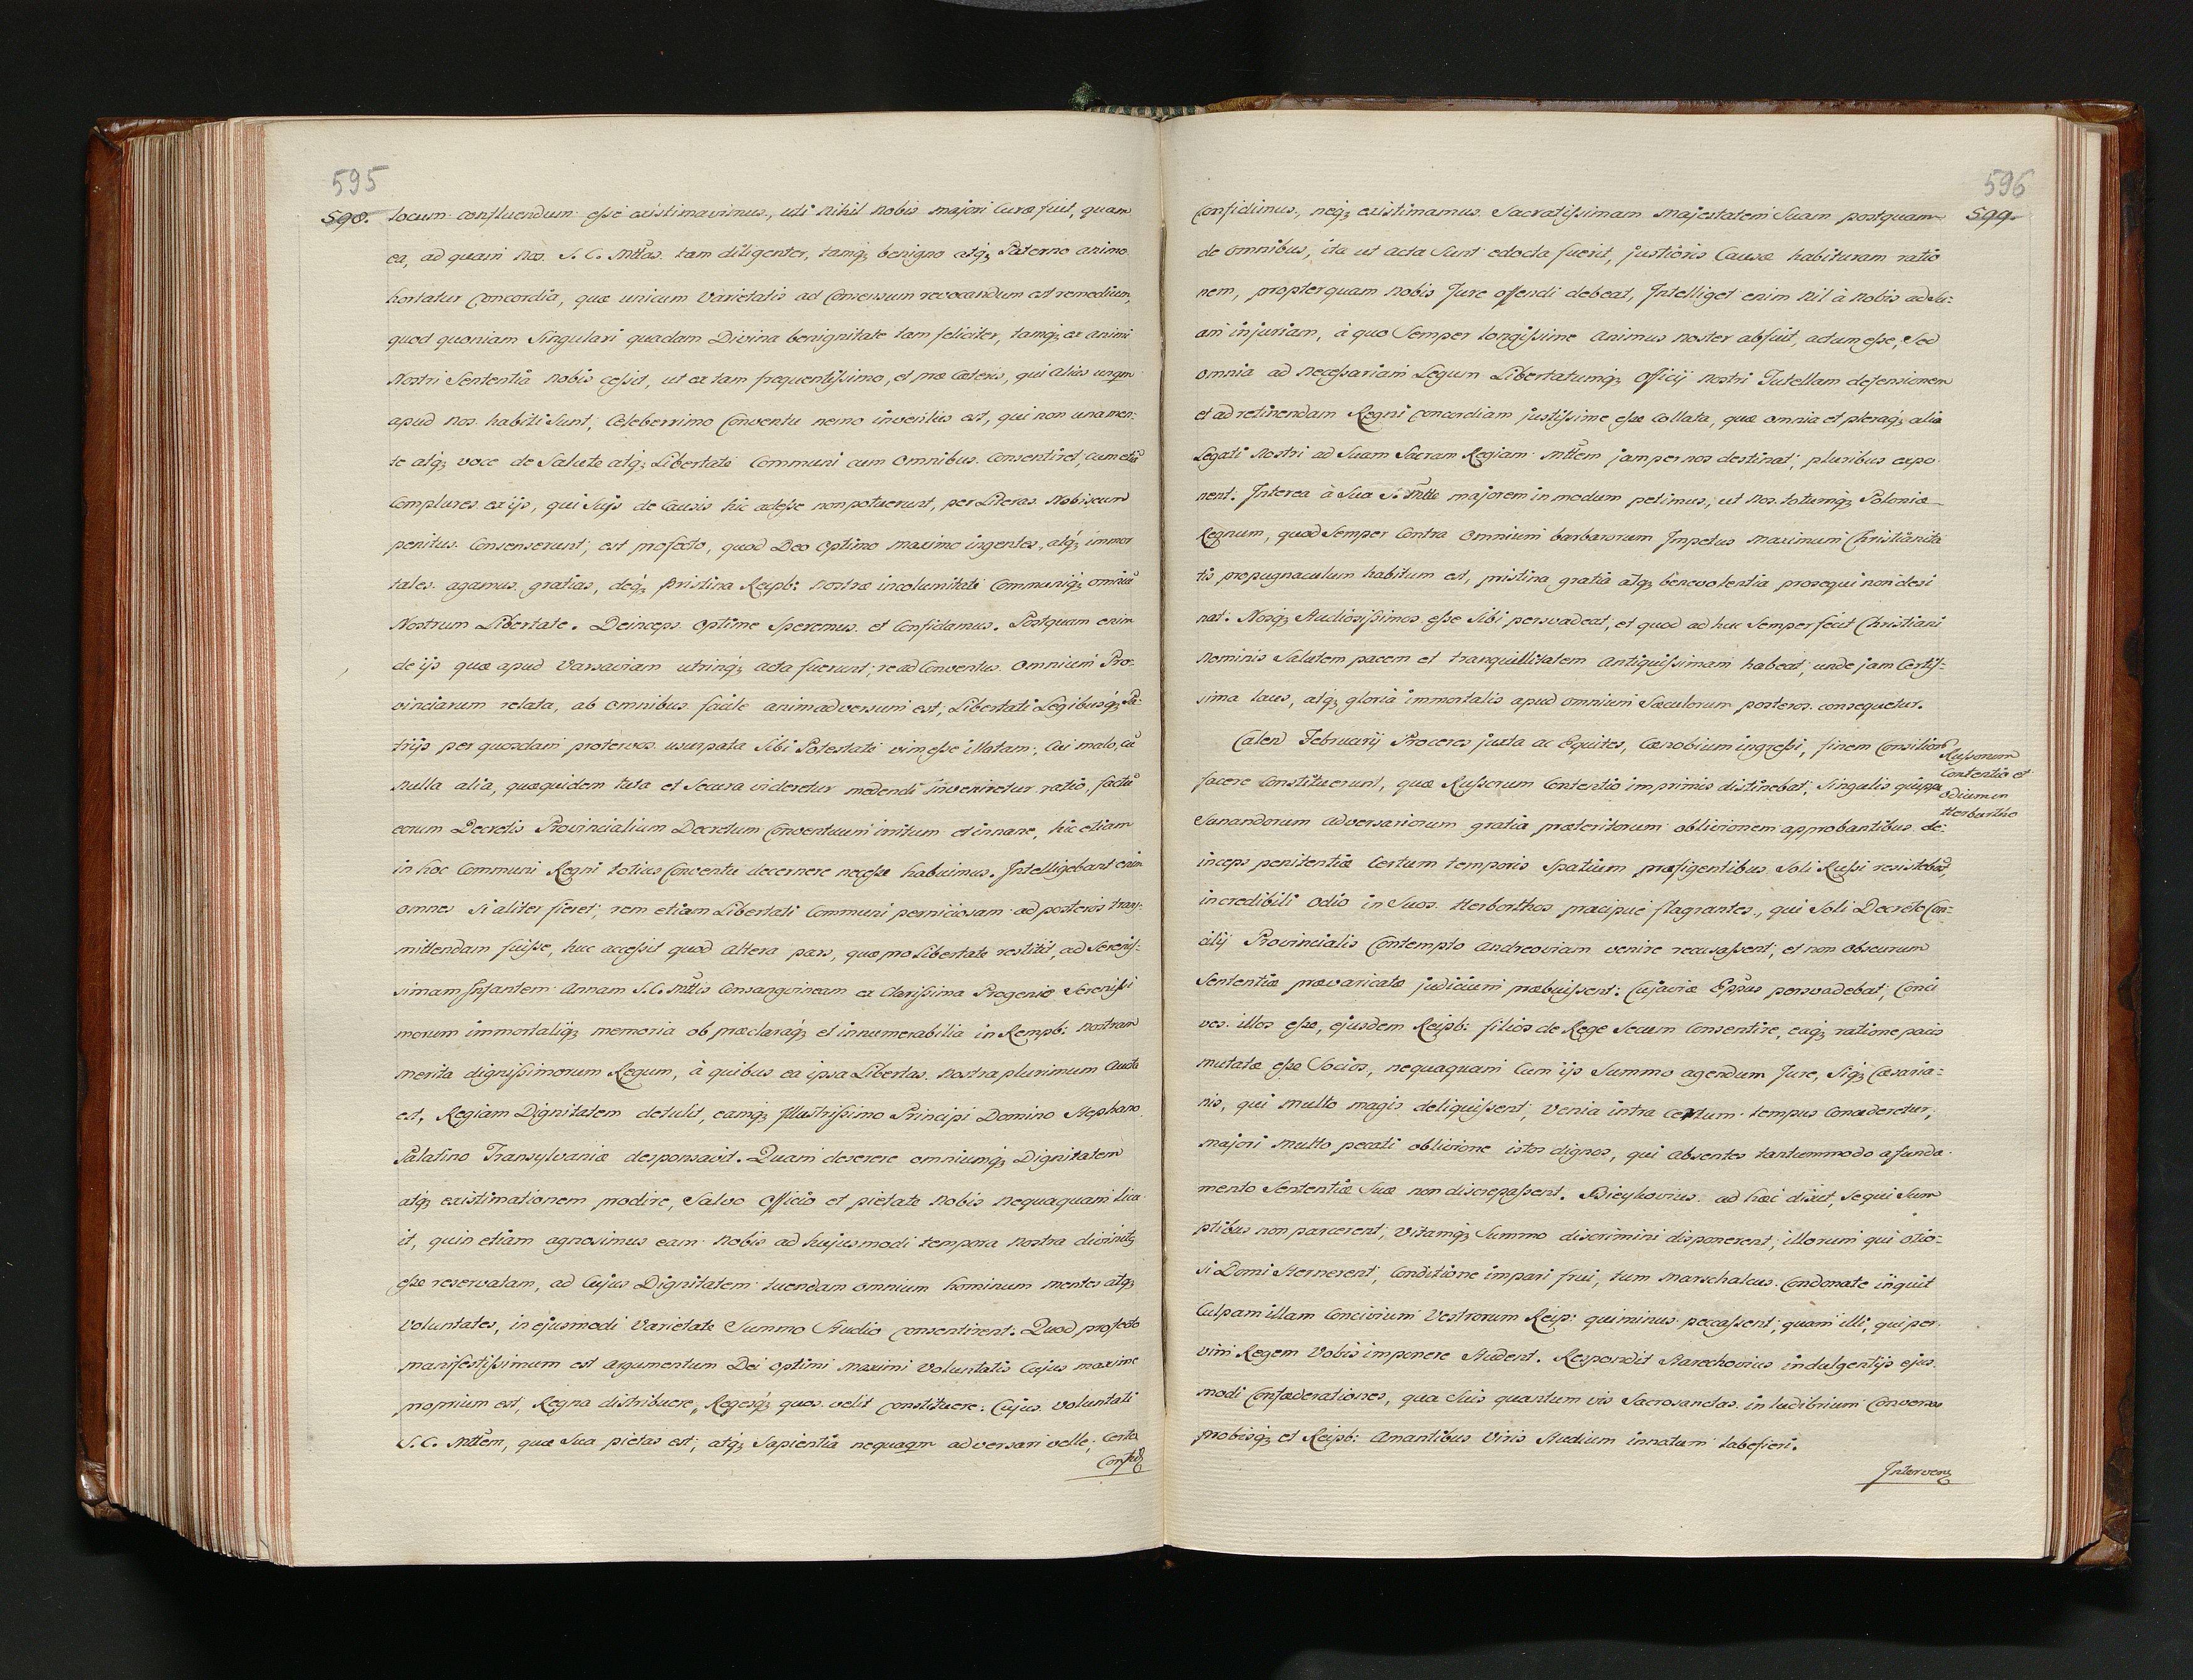 595
598. locum confluendum esse existimavimus, uti nihil nobis majori Curæ fuit, quam
ea, ad quam nos S. C. Mttas tam diligenter, tamq; benigno atq; Paterno animo
hortatur Concordia, quæ unicum Varietatis ad Consensum revocandum est remedium,
quod quoniam Singulari quadam Divina benignitate tam feliciter, tamq; ex animi
Nostri Sententia nobis cessit, ut ex tam frequentissimo, et præ Cæteris, qui alias unqm
apud nos habiti Sunt, Celeberrimo Conventu nemo inventus est, qui non una men:
te atq; voce de Salute atq; Libertate Communi cum Omnibus Consentiret, cum etiã
Complures ex ijs, qui Suis de Causis hic adesse non potuerunt, per Literas Nobiscum
penitus Consenserunt, est profecto, quod Deo Optimo maximo ingentes, atq; immor
tales agamus gratias, deq; Pristina Reipb: nostræ incolumitate Communiq; omniũ
Nostrum Libertate. Deinceps Optime Speremus et Confidamus. Postquam enim
de ijs quæ apud Varsaviam utrinq; acta fuerunt, re ad Conventus Omnium Pro:
vinciarum relata, ab Omnibus facile animadversum est, Libertati Legibusq; Pa:
trijs per quosdam protervos usurpata Sibi Potestate vim esse illatam, Cui malo, cũ
nulla alia, quæquidem tuta et Secura videretur medendi inveniretur ratio, factũ
eorum Decretis Provincialium Decretum Conventuum irritum et innane, hic etiam
in hoc Communi Regni totius Conventu decernere necesse habuimus. Intelligebant enim
omnes Si aliter fieret, rem etiam Libertati Communi perniciosam ad posteros trans:
mittendam fuisse, huc accessit quod altera pars, quæ pro Libertate restitit, ad Sereniss:
simam Infantem Annam S. C. Mttis Consanguineam ex Clarissima Progenie Serenissi
morum immortaliq; memoria ob præclaraq; et innumerabilia in Rempb: nostram
merita dignissimorum Regum, à quibus ea ipsa Libertas nostra plurimum aucta
est, Regiam Dignitatem detulit, eamq; Illustrissimo Principi Domino Stephano
Palatino Transylvaniæ desponsavit. Quam deserere omniumq; Dignitatem
atq; existimationem prodire, Salvo Officio et pietate nobis nequaquam lica
it, quin etiam agnosimus eam nobis ad hujusmodi tempora nostra divinitq
esse reservatam, ad Cujus Dignitatem tuendam omnium hominum mentes atq;
Voluntates, in ejusmodi Varietate Summo Studio Consentirent. Quod profecto
manifestissimum est argumentum Dei Optimi Maximi Voluntatis Cujus maxime
proprium est, Regna distribuere, Regesq; quos velit Constituere: Cujus Voluntati
S. C. Mttem, quæ Sua pietas est, atq; Sapientia nequaqm adversari velle, Certo
Confid
596
599.
Confidimus, neq; existimamus Sacratissimam Majestatem Suam postquam
de Omnibus, ita ut acta Sunt edocta fuerit, justioris Causæ habituram ratio
nem, propter quam nobis Jure offendi debeat, Intelliget enim nil à nobis ad Su:
am injuriam, à quo Semper longissime Animus noster abfuit, actum esse, Sed
omnia ad necessariam Legum Libertatumq; Officij Nostri Tutellam defensionem
et ad retinendam Regni Concordiam justissime esse Collata, quæ omnia et pleraq; alia
Legati Nostri ad Suam Sacram Regiam Mttem jam per nos destinati, pluribus expo
nent. Interea à Sua S. Mtte majorem in modum petimus, ut nos totumq; Poloniæ
Regnum, quod Semper Contra Omnium barbarorum Impetus maximum Christianita
tis propugnaculum habitum est, pristina gratia atq; benevolentia prosequi non desi
nat: Nosq; Studiosissimos esse Sibi persvadeat, et quod ad huc Semper fecit Christiani
Nominis Salutem pacem et tranquillitatem antiquissimam habeat, unde jam Certis:
sima laus, atq; gloria immortalis apud omnium Sæculorum posteros consequetur.
Calend Februarij Proceres juxta ac Equites, Cænobium ingressi, finem Consilior
facere Constituerunt, quæ Russorum Contentio imprimis distinebat, Singulis quippe
Russorum
Contentio et
Odium in
Herborthos
Sanandorum adversariorum gratia præteritorum oblivionem approbantibus de:
inceps penitentiæ Certum temporis Spatium præfigentibus Soli Russi resistebãt,
incredibili Odio in Suos Herborthos præcipuè flagrantes, qui Soli Decreto Con:
cilij Provincialis Contempto Andreoviam venire recusassent, et non obscurum
Sententiæ prævaricatæ judicium præbuissent: Cujaviæ Eppus persvadebat, Conci
ves illos esse, ejusdem Reipb: filios de Rege Secum Consentire, eaq; ratione pacis
mutatæ esse Socios, nequaquam Cum ijs Summo agendum Jure, Siq; Cæsaria:
nis, qui multo magis deliquissent, Venia intra certum tempus Concederetur,
majori multo pecati oblivione istos dignos, qui absentes tantummodo a funda
mento Sententiæ Suæ non discrepassent. Bieykovius ad hæc dixit, se qui Sum
ptibus non parcerent, Vitamq; Summo discrimini disponerent, illorum qui otio:
si Domi Sternerent, Conditione impari frui, tum Marschalcus Condonate inquit
Culpam illam Concivium Vestrorum Reip: qui minus peccassent, quam illi, qui per
vim Regem Vobis imponere Student. Respondit Starechovius indulgentijs ejus
modi Confæderationes, qua Suis quantum vis Sacrosanctas in ludibrium Conversas
probisq; et Reipb: Amantibus Viris Studium innatum labefieri.
Interven